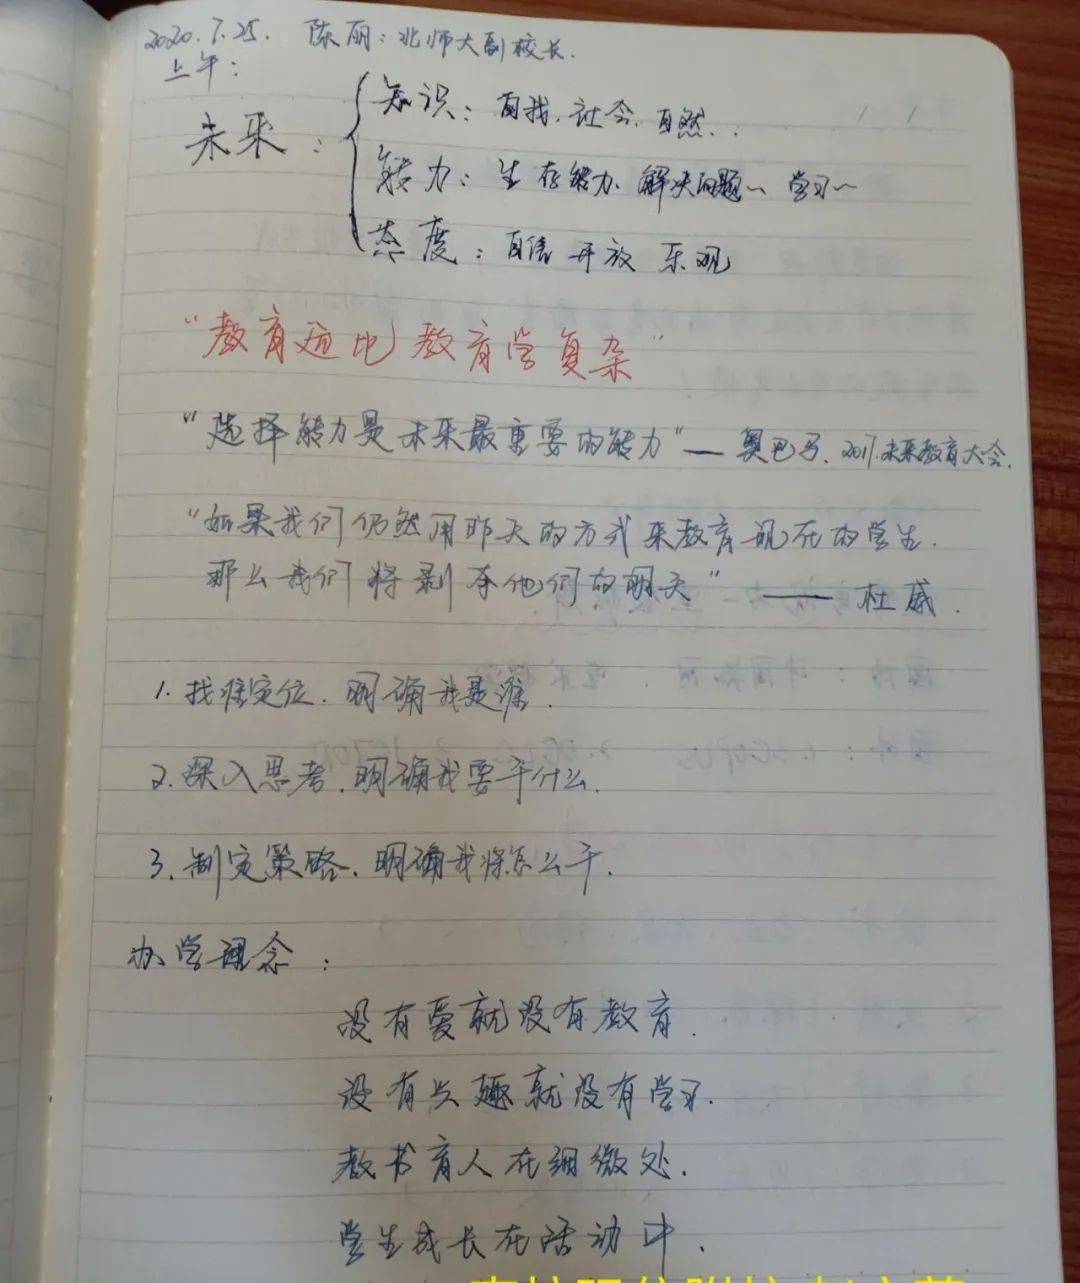 2020.7.25. 陈丽：北师大副校长.
上午：
未来：
知识：自我.社会.自然..
能力：生存能力、解决问题~ 学习~
态度：自信 开放 乐观
“教育远比教育学复杂”
“选择能力是未来最重要的能力”— 奥巴马.2017.未来教育大会.
“如果我们仍然用昨天的方式来教育现在的学生.
那么我们将剥夺他们的明天” —— 杜威.
1.找准定位.明确我是谁.
2.深入思考.明确我要干什么.
3.制定策略.明确我将怎么干.
办学理念：
没有爱就没有教育.
没有兴趣就没有学习.
教书育人在细微处.
学生成长在活动中.